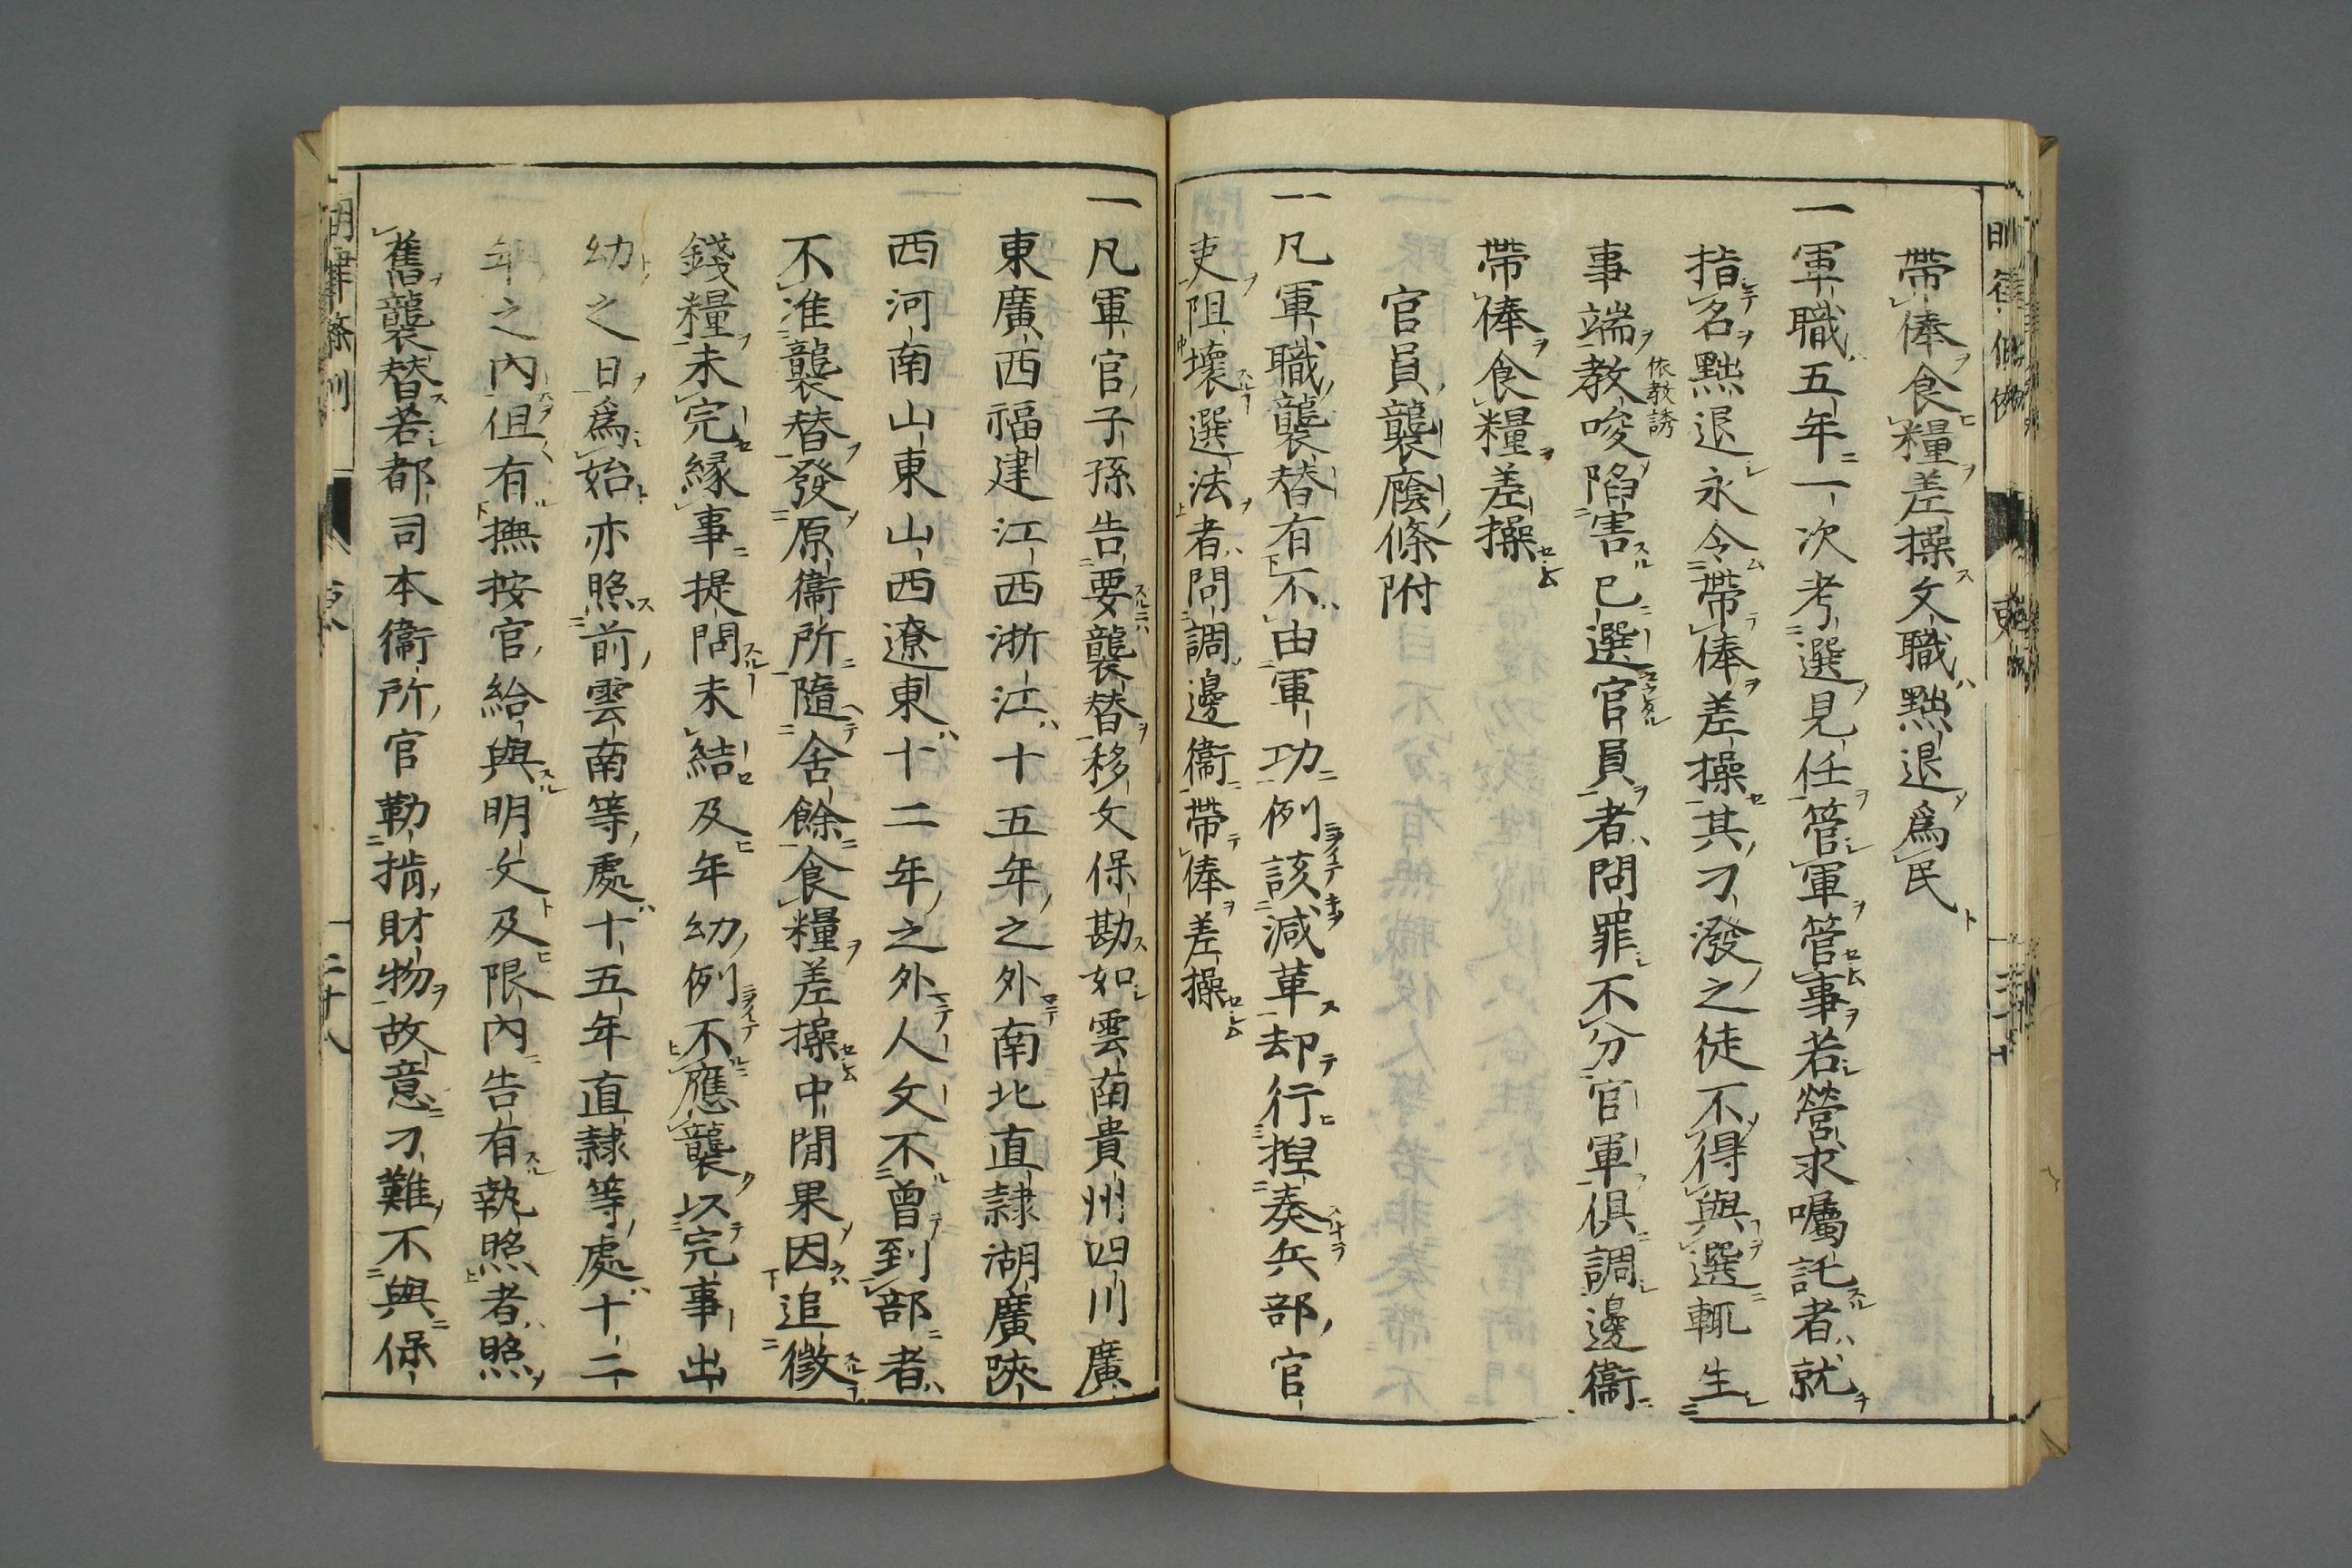 帶俸食糧差操文職黜退爲民
一軍職五年一次考選見任管軍管事若營求囑託者就
指名黜退永令帶俸差操其刁潑之徒不得與選輒生
事端教唆陷害已選官員者問罪不分官軍俱調邊衞
依教誘
帶俸食糧差操
官員襲廕條附
一凡軍職襲替有不由軍功例該減革却行揑奏兵部官
吏阻壞選法者問調邊衞帶俸差操
一凡軍官子孫告要襲替移文保勘如雲南貴州四川廣
東廣西福建江西浙江十五年之外南北直隷湖廣陝
西河南山東山西遼東十二年之外人文不曾到部者
不准襲替發原衞所隨舍餘食糧差操中間果因追徵
錢糧未完緣事提問未結及年幼例不應襲以完事出
幼之日爲始亦照前雲南等處十五年直隷等處十二
年之內但有撫按官給與明文及限內告有執照者照
舊襲替若都司本衞所官勒掯財物故意刁難不與保